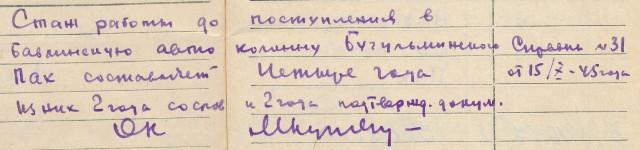 Стаж работы до поступления в
Бавлинскую авто колонну Бугульминского Справка №31
Пах составляет Четыре года от 15/X-45 года
из них 2 года со слов и 2 года подтвержд. докум.
ОК